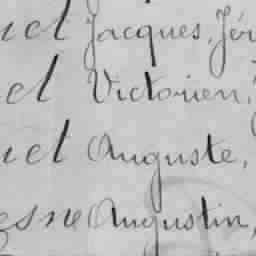 uel Jacques, Jér
el Victorien,
uel Auguste,
esne Augustin,